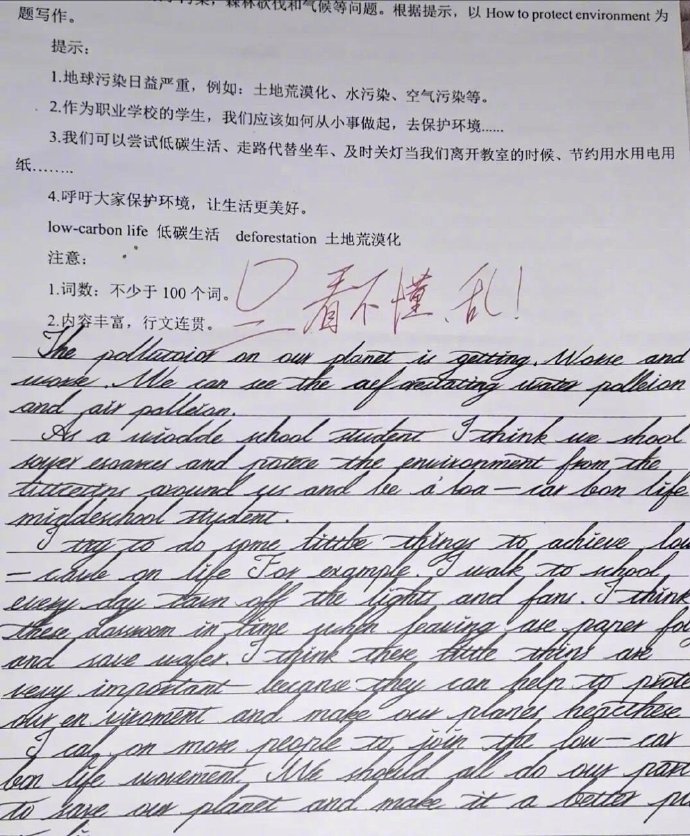 森林砍伐和气候等问题。根据提示，以 How to protect environment 为
题写作。
提示：
1.地球污染日益严重，例如：土地荒漠化、水污染、空气污染等。
2.作为职业学校的学生，我们应该如何从小事做起，去保护环境......
3.我们可以尝试低碳生活、走路代替坐车、及时关灯当我们离开教室的时候、节约用水用电用
纸........
4.呼吁大家保护环境，让生活更美好。
low-carbon life 低碳生活 deforestation 土地荒漠化
注意：
1.词数：不少于 100 个词。
2.内容丰富，行文连贯。
看不懂、乱！
The pollatoior on our planet is getting. Worse and
worse. We can see the aef orestating water polleion
and air polleion.
As a miodde school student I think we shool
and potece the environment from the
around us and be a loa-car bon life
middeschool student.
I try to do some little things to achieve low
- caue on life For example. I walk to school
every day tarn off the lights and fans. I think
these dassroom in time when leaving are paper
and save wafer. I think these little thins are
very important because they can help to prote
our en viroment and make our planes
I cal on mose people to join the low-car
bon life movement. We should all do our part
to save our planet and make it a better